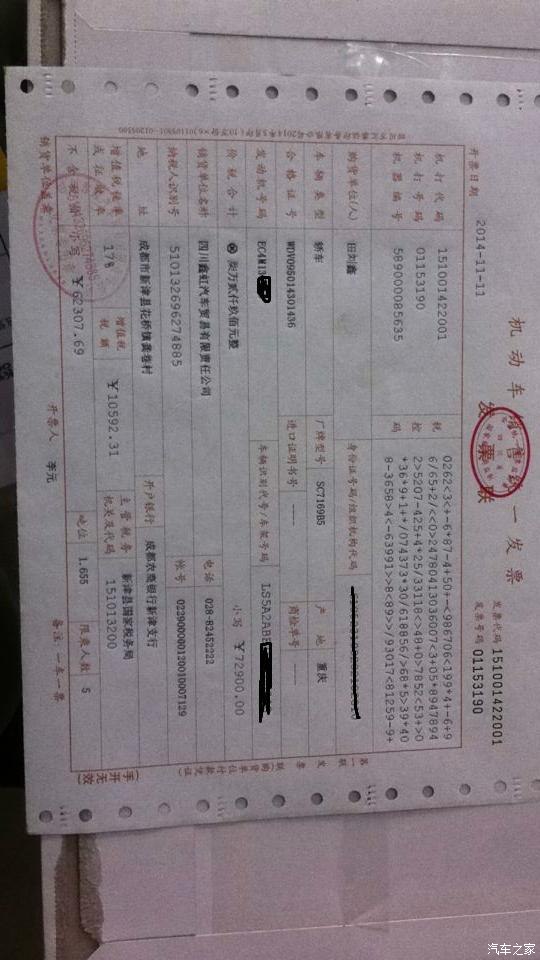 机动车销售统一发票
发票联
发票代码 151001422001
发票号码 01153190
开票日期 2014-11-11
机打代码 151001422001
机打号码 01153190
机器编号 589000085635
税控码
0262<3<+-6*87-4+50+-<986706<199*4+-6+9
6/65+2/<<0>2478041303600 7<3+05*8947894
2>5207-425+4*25/33118<>48+0>7852<53+>0
*36*9+1+*/074373*30/618856/>68*5>39*40
8-3658>4<-63991>>8<89>>/93017<81259-9+
购货单位(人) 田刘鑫 身份证号码/组织机构代码
车辆类型 轿车 厂牌型号 SC7169B5 产地 重庆
合格证号 WDV095014301436 进口证明书号 ---- 商检单号 ----
发动机号码 EC4M13 车辆识别代号/车架号码 LS5A2ABE
价税合计 ⊗ 柒万贰仟玖佰元整 小写 ￥72900.00
销货单位名称 四川鑫虹汽车贸易有限责任公司 电话 028-82452222
纳税人识别号 510132696274885 帐号 022900000120010007129
地址 成都市新津县花桥镇龚巷村 开户银行 成都农商银行新津支行
增值税税率或征收率 17% 增值税税额 ￥10592.31 主管税务机关及代码 新津县国家税务局 151013200
不含税价 小写 ￥62307.69 吨位 1.655 限乘人数 5
销货单位盖章 开票人 李元 备注 一车一票
第一联 发票联(购货单位付款凭证)
(手开无效)
汽车之家